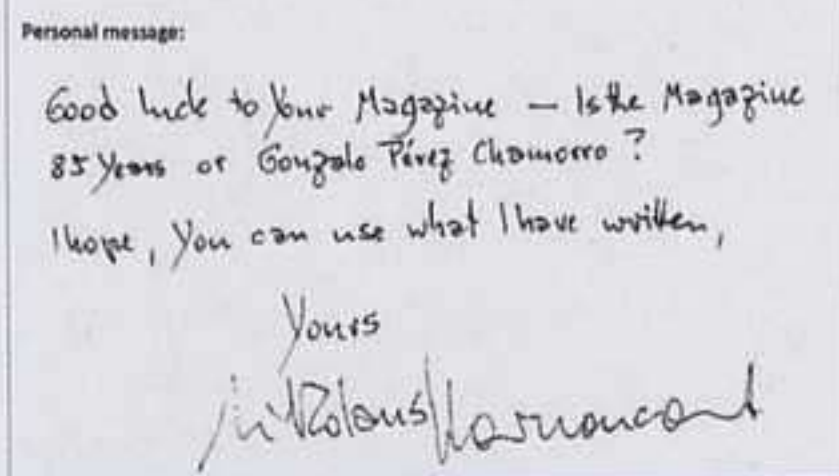 Personal message:
Good luck to Your Magazine – Is the Magazine
85 Years or Gonzalo Pérez Chamorro ?
I hope, You can use what I have written,
Yours
Nikolaus Harnoncourt